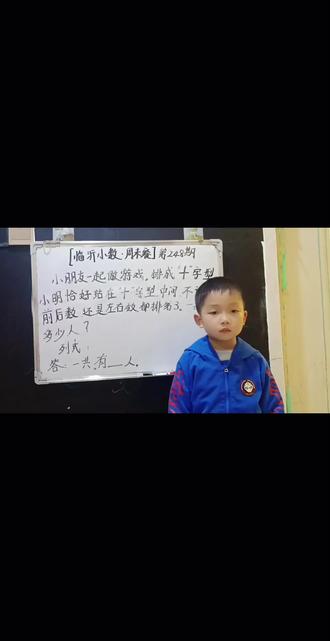 [临沂小数·周末趣]第248期
小朋友一起做游戏,排成“十”字型
小明恰好站在“十”字型中间 不
前后数 还是左右数都排第3
多少人?
列式:
答:一共有__人.